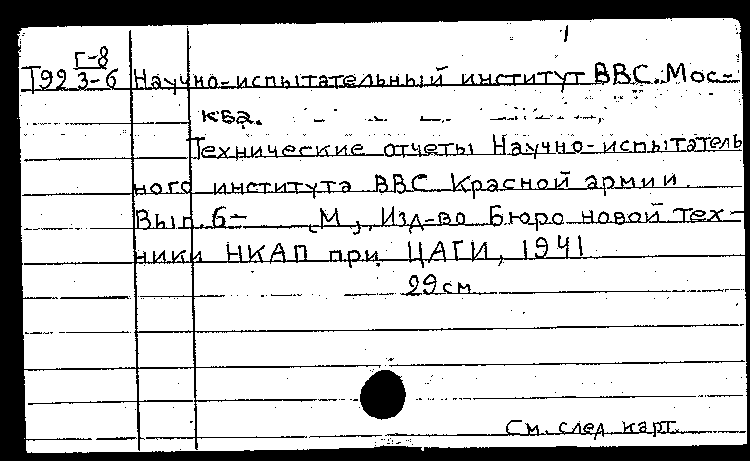 1
Г-8
Т92 3-6 Научно-испытательный институт ВВС. Мос-
ква.
Технические отчеты Научно-испытатель
ного института ВВС Красной армии.
Вып. 6- М., Изд-во Бюро новой тех-
ники НКАП при ЦАГИ, 1941
29 см
См. след карт.